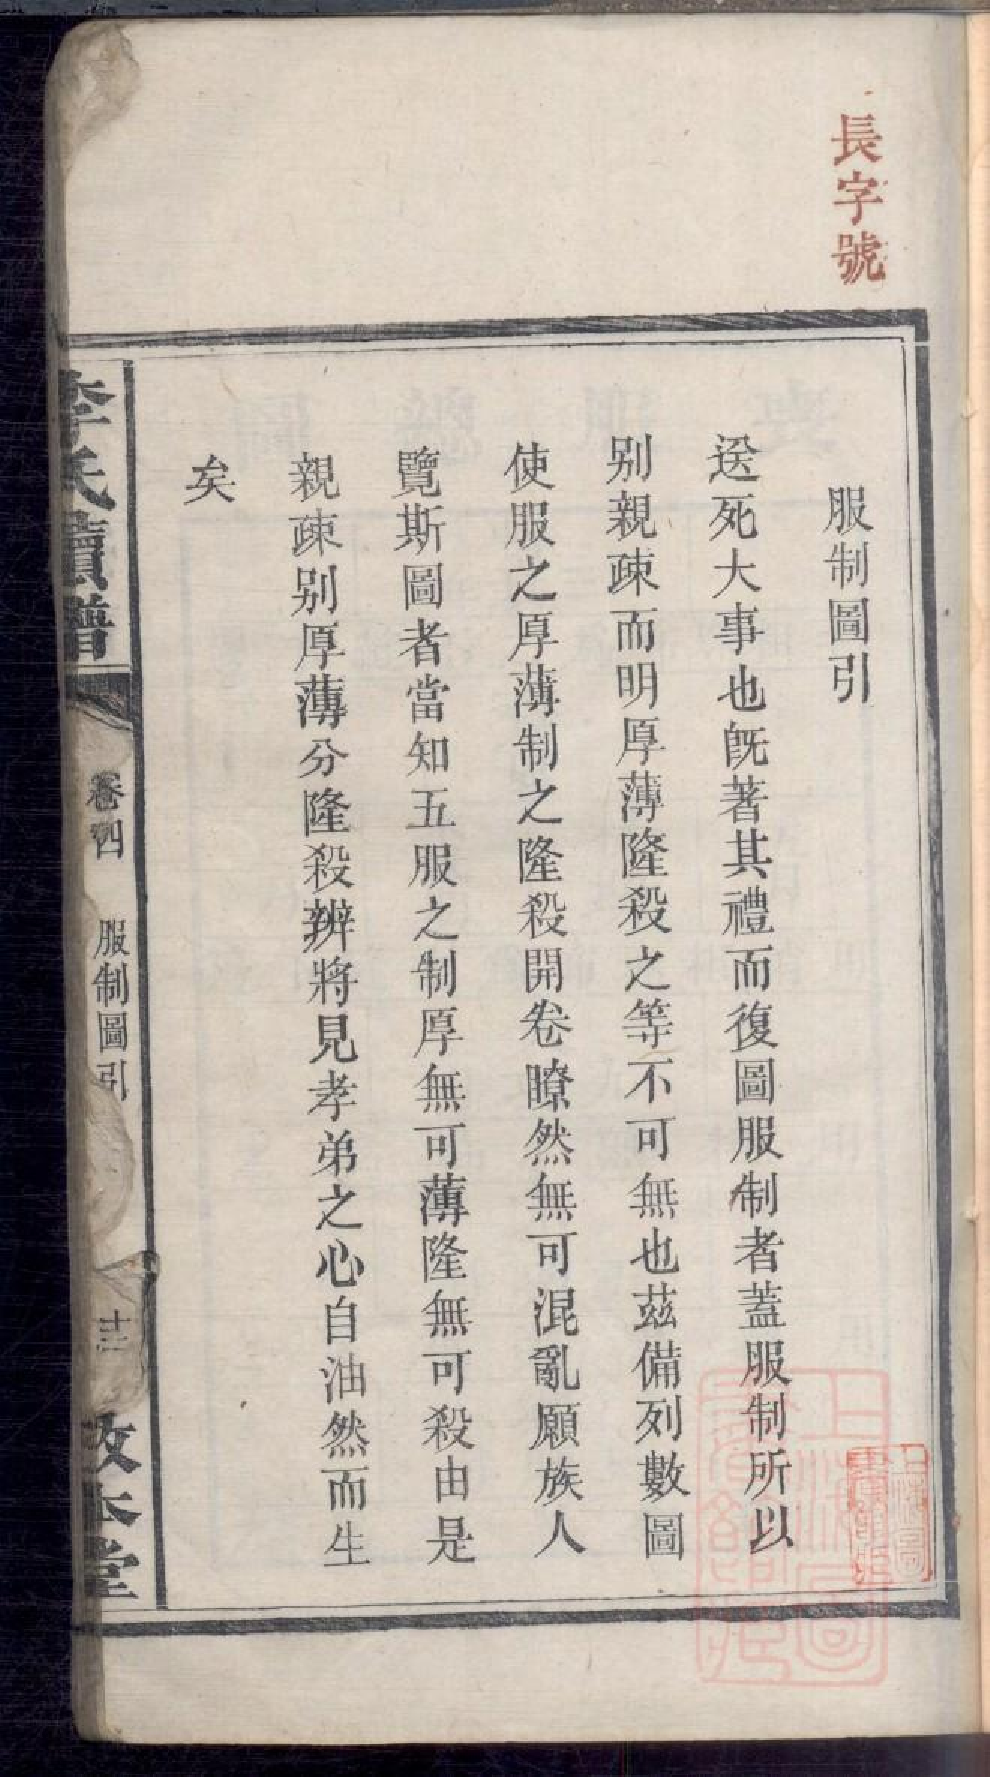 長字號
服制圖引
送死大事也旣著其禮而復圖服制者蓋服制所以
别親疎而明厚薄隆殺之等不可無也茲備列數圖
使服之厚薄制之隆殺開卷瞭然無可混亂願族人
覽斯圖者當知五服之制厚無可薄隆無可殺由是
親疎别厚薄分隆殺辨將見孝弟之心自油然而生
矣
李氏續譜
卷四
服制圖引
敦本堂